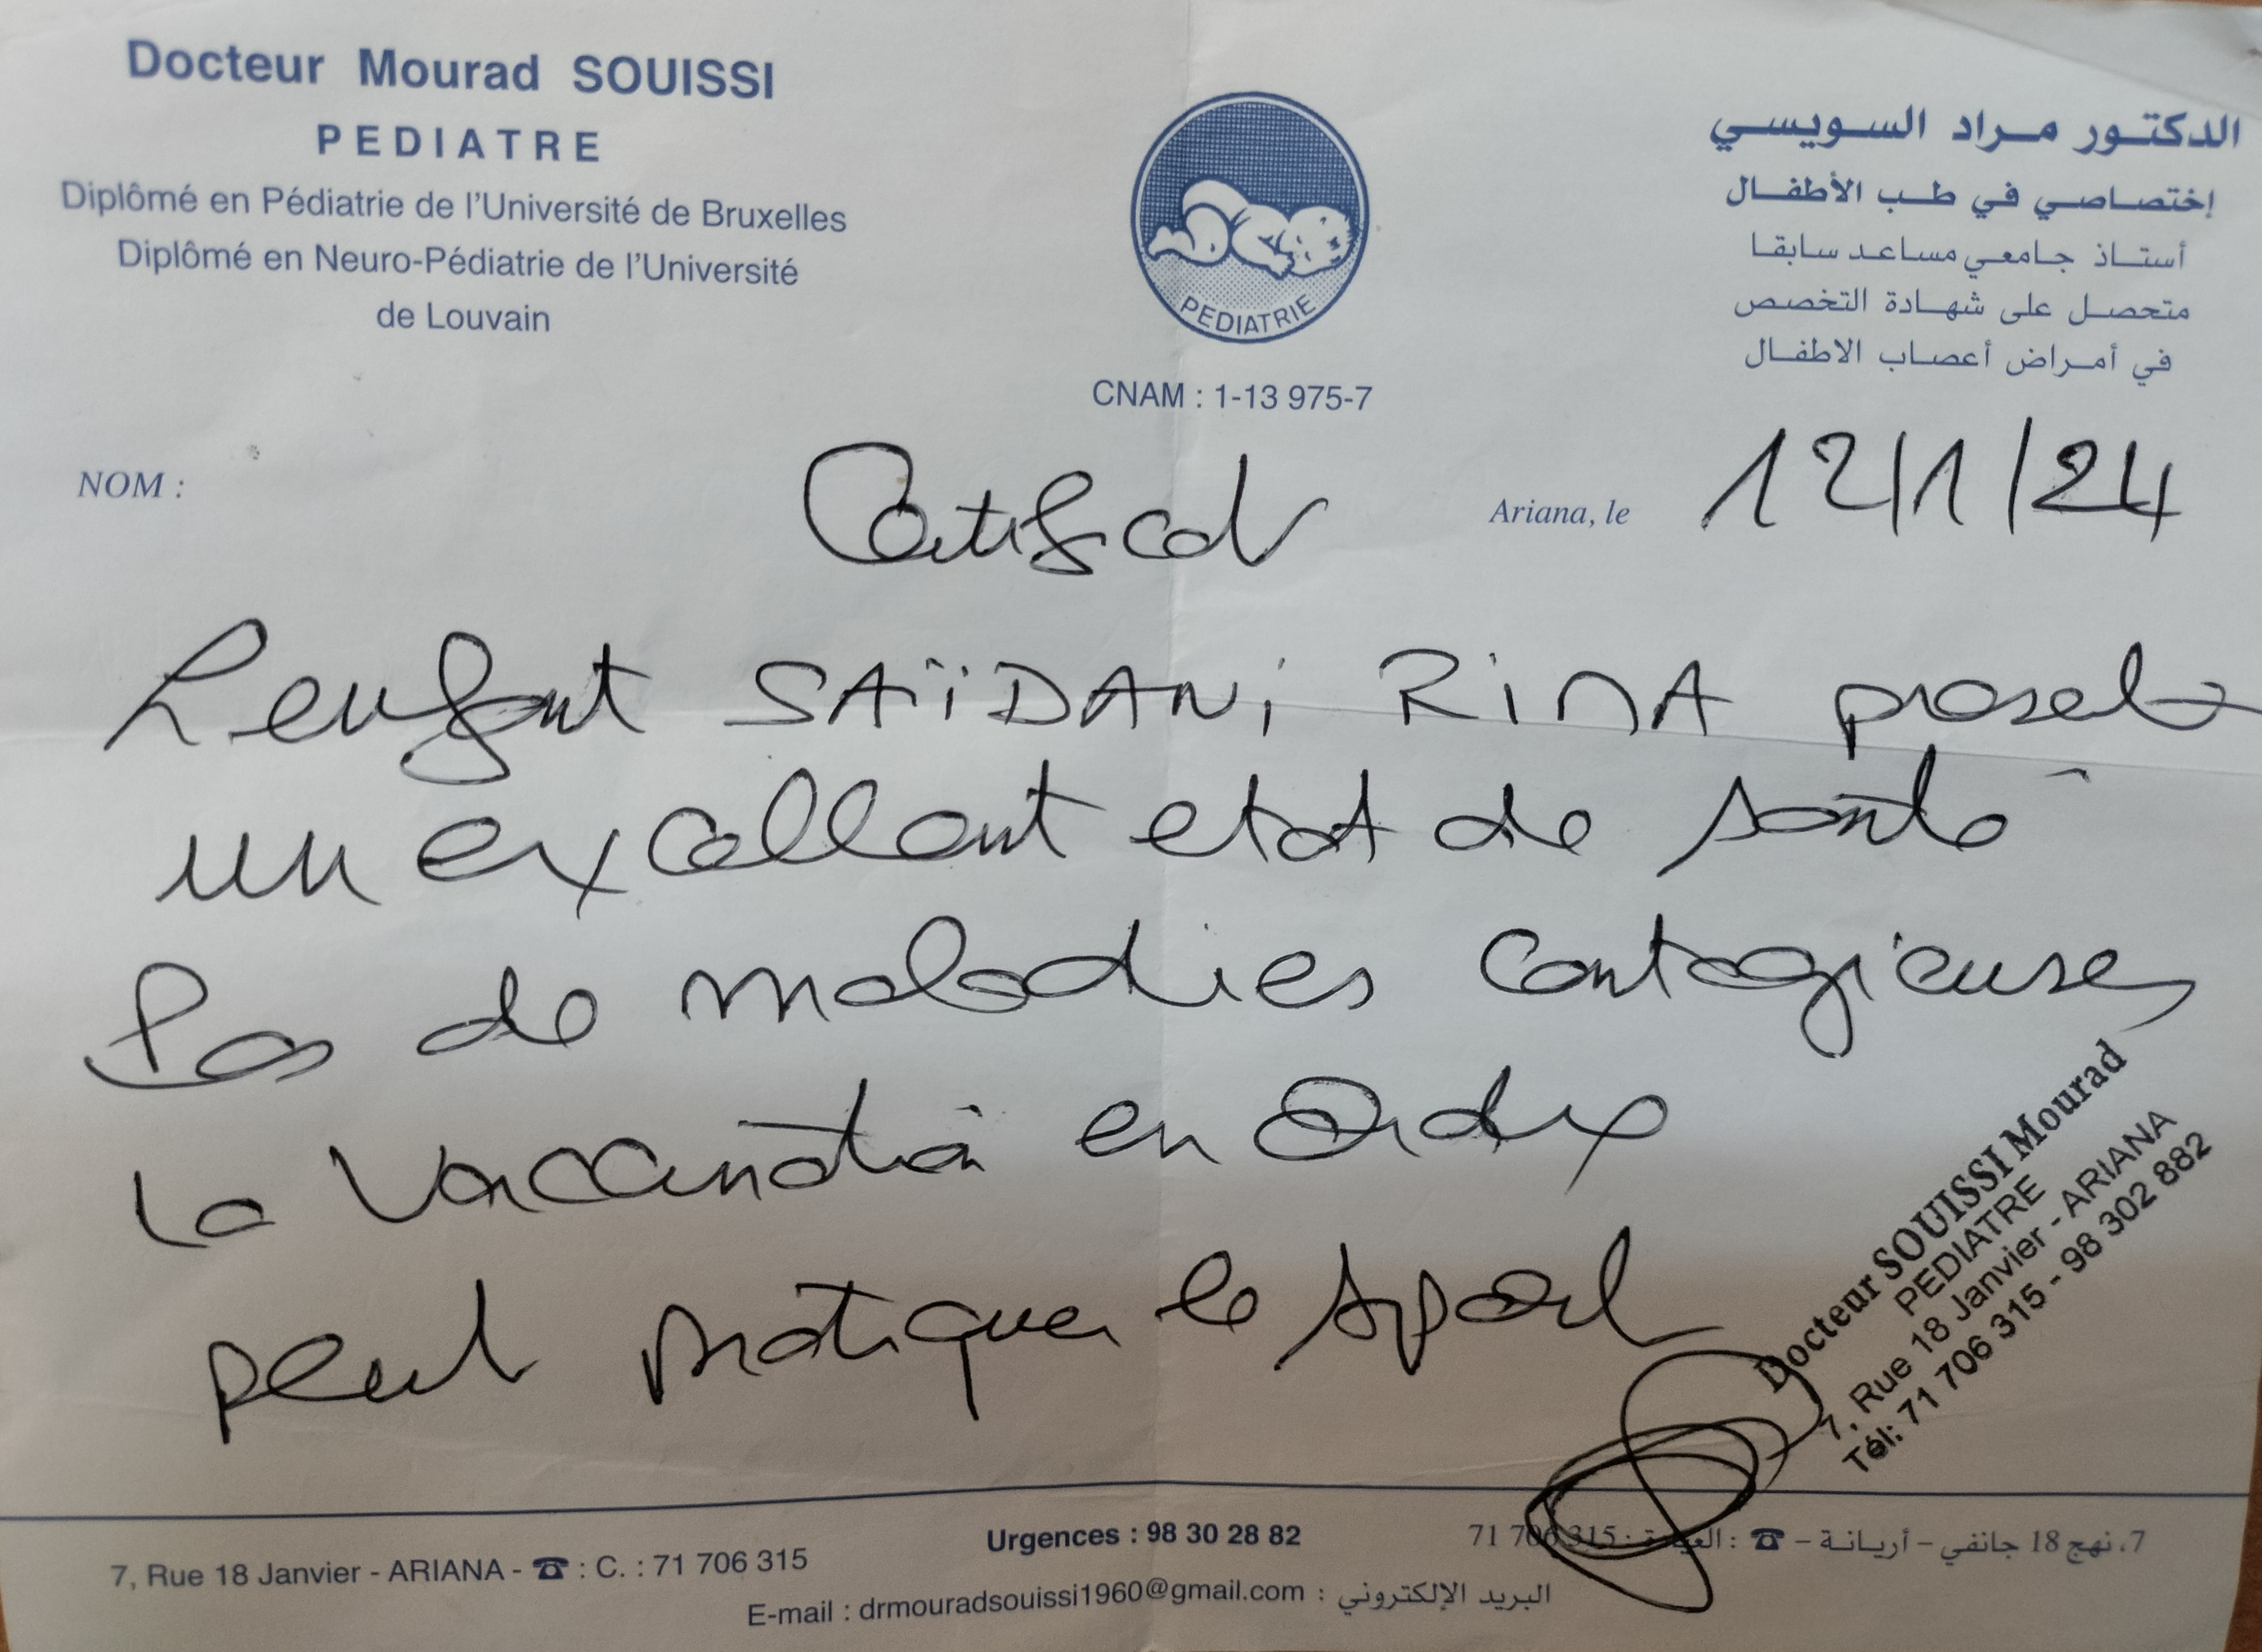 Docteur Mourad SOUISSI
PEDIATRE
Diplômé en Pédiatrie de l'Université de Bruxelles
Diplômé en Neuro-Pédiatrie de l'Université
de Louvain
PEDIATRIE
CNAM : 1-13 975-7
الدكتور مراد السويسي
إختصاصي في طب الأطفال
أستاذ جامعي مساعد سابقا
متحصل على شهادة التخصص
في أمراض أعصاب الاطفال
NOM :
Ariana, le 12/1/24
Certificat
L'enfant SAÏDANI RIMA présente
un excellent etat de santé
Pas de maladies contagieuses
la vaccination en ordre
peut pratiquer le sport
Docteur SOUISSI Mourad
PEDIATRE
7, Rue 18 Janvier - ARIANA
Tél: 71 706 315 - 98 302 882
7, Rue 18 Janvier - ARIANA - ☎ : C. : 71 706 315
Urgences : 98 30 28 82
7، نهج 18 جانفي – أريانة – ☎ : العيادة : 71 706 315
E-mail : drmouradsouissi1960@gmail.com : البريد الإلكتروني